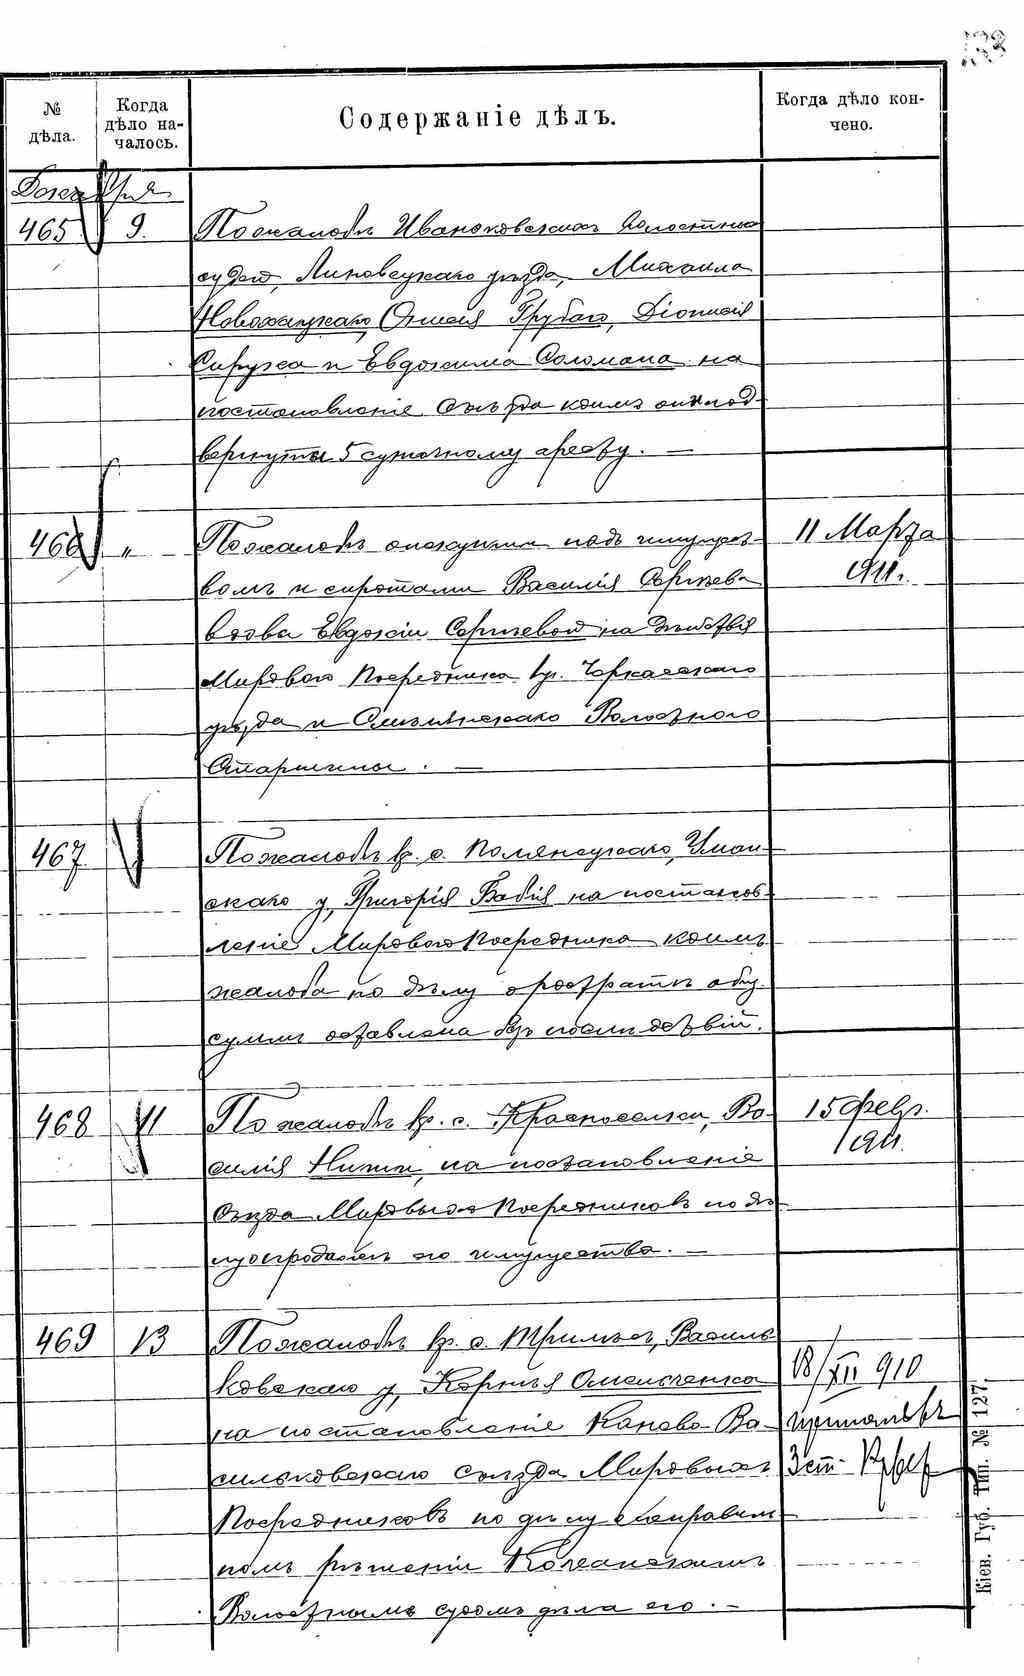 № дѣла.
Когда дѣло началось.
Содержаніе дѣлъ.
Когда дѣло кончено.
Декабря
465 9. По жалобѣ Иваньковскихъ Волостныхъ
судей, Липовецкаго уѣзда, Михаила
Новохацкаго, Грубаго, Діонисія
и Евдокима Соломана на
постановленіе Съѣзда коимъ они под-
вергнуты 5 суточному аресту. —
466 " По жалобѣ опекунши надъ имущест-
вомъ и сиротами Василія Сергѣева
вдова Евдокіи Сергѣевой на дѣйствія
Мирового Посредника Черкасскаго
уѣзда и Волостного
Старшины. —
11 Марта
1911 г.
467 По жалобѣ кр. с. Полянецкаго, Уман-
скаго у, Григорія Бабія на постанов-
леніе Мирового Посредника коимъ
жалоба по дѣлу о растратѣ общ.
суммъ оставлена безъ послѣдствій.
468 11 По жалобѣ кр. с. Красноселки, Ва-
силія на постановленіе
Съѣзда Мировыхъ Посредниковъ по дѣ-
лу о продажѣ его имущества. —
15 февр.
1911.
469 13 По жалобѣ кр. с. Триль́съ, Василь-
ковскаго у, Корнѣя Омельченка
на постановленіе Канево-Ва-
сильковскаго съѣзда Мировыхъ
Посредниковъ по дѣлу о неправиль-
номъ рѣшеніи Кожанскимъ
Волостнымъ судомъ дѣла его. —
18/XII 910
3 ст.
Кіев. Губ. Тип. № 127.